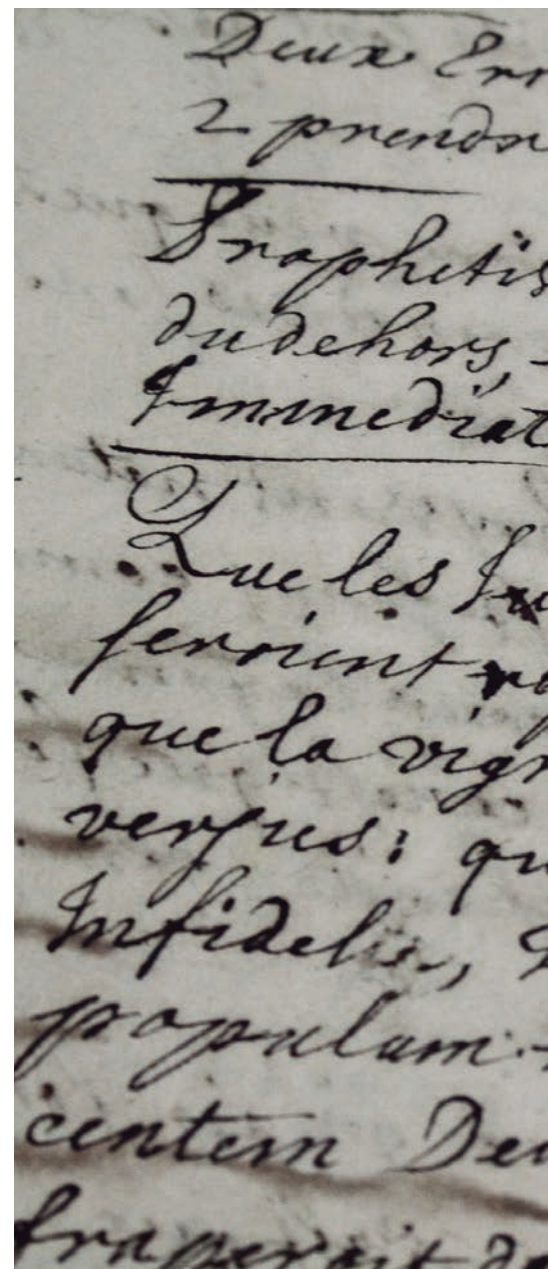 Deux Err
2 prendre
Prophetis
du dehors,
Immediat
Que les Ju
seroient
que la vign
verjus: qu
Infidelis,
populum
centem Deu
fraperoit de